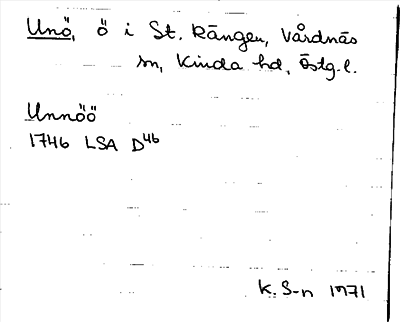 Unö, ö i St. Rängen, Vårdnäs
sn, Kinda hd, Östg.l.
Unnöö
1746 LSA D⁴⁶
K. S-n 1971